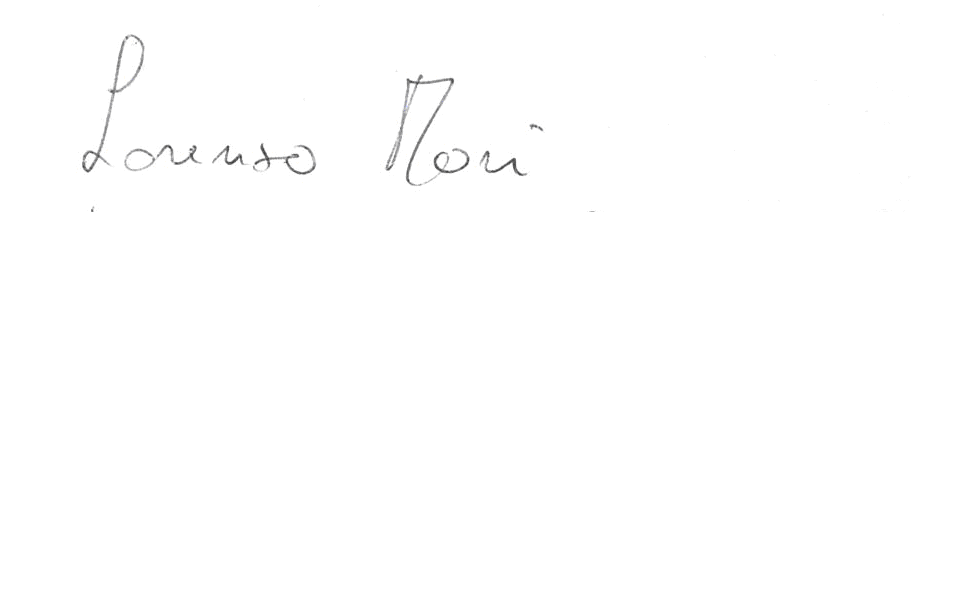 Lorenzo Mori